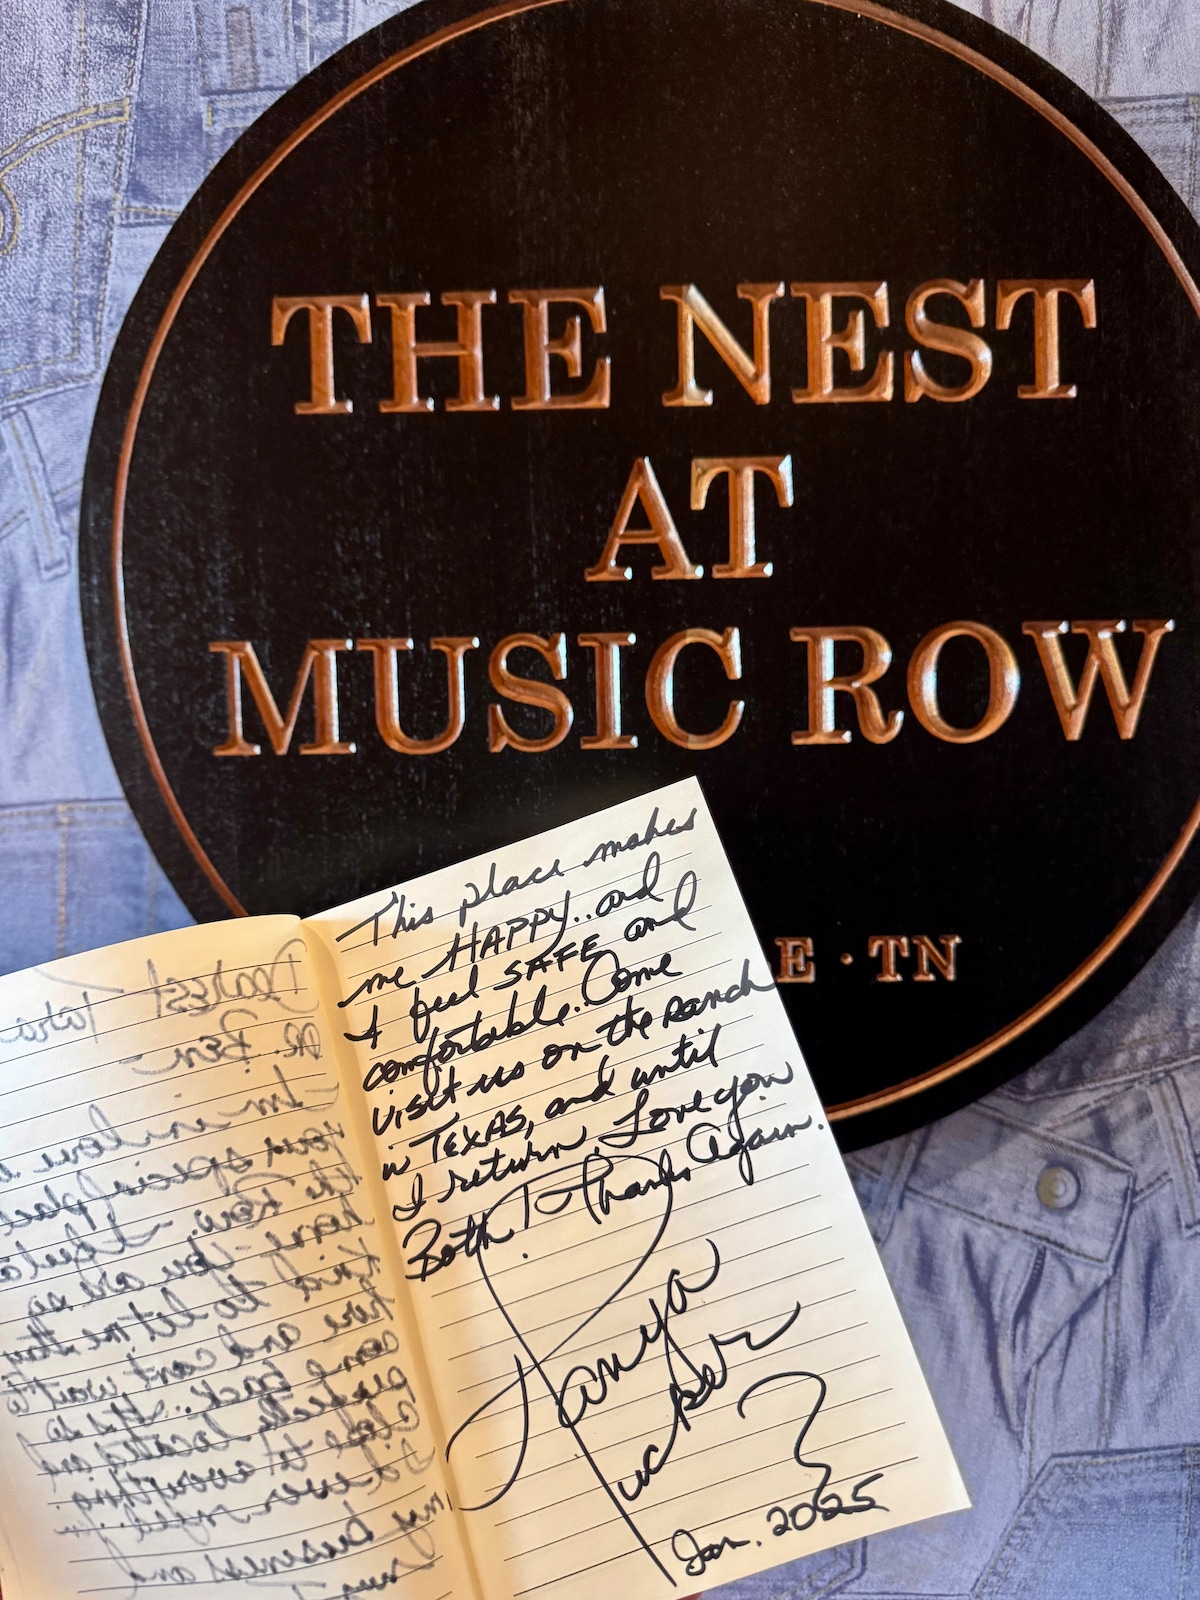 THE NEST
AT
MUSIC ROW
E · TN
Dearest Tara
& Ben -
I'm in love
your special place
the Row. I feel
home - you are so
kind to let me stay
here and can't wait to
come back.. It is so
perfectly located and
close to everything
I'd ever need.
my business and
This place makes
me HAPPY.. and
I feel SAFE and
comfortable. Come
visit us on the Ranch
in TEXAS, and until
I return. Love you
Both! Thanks Again.
Tanya
Tucker
Jan. 2025